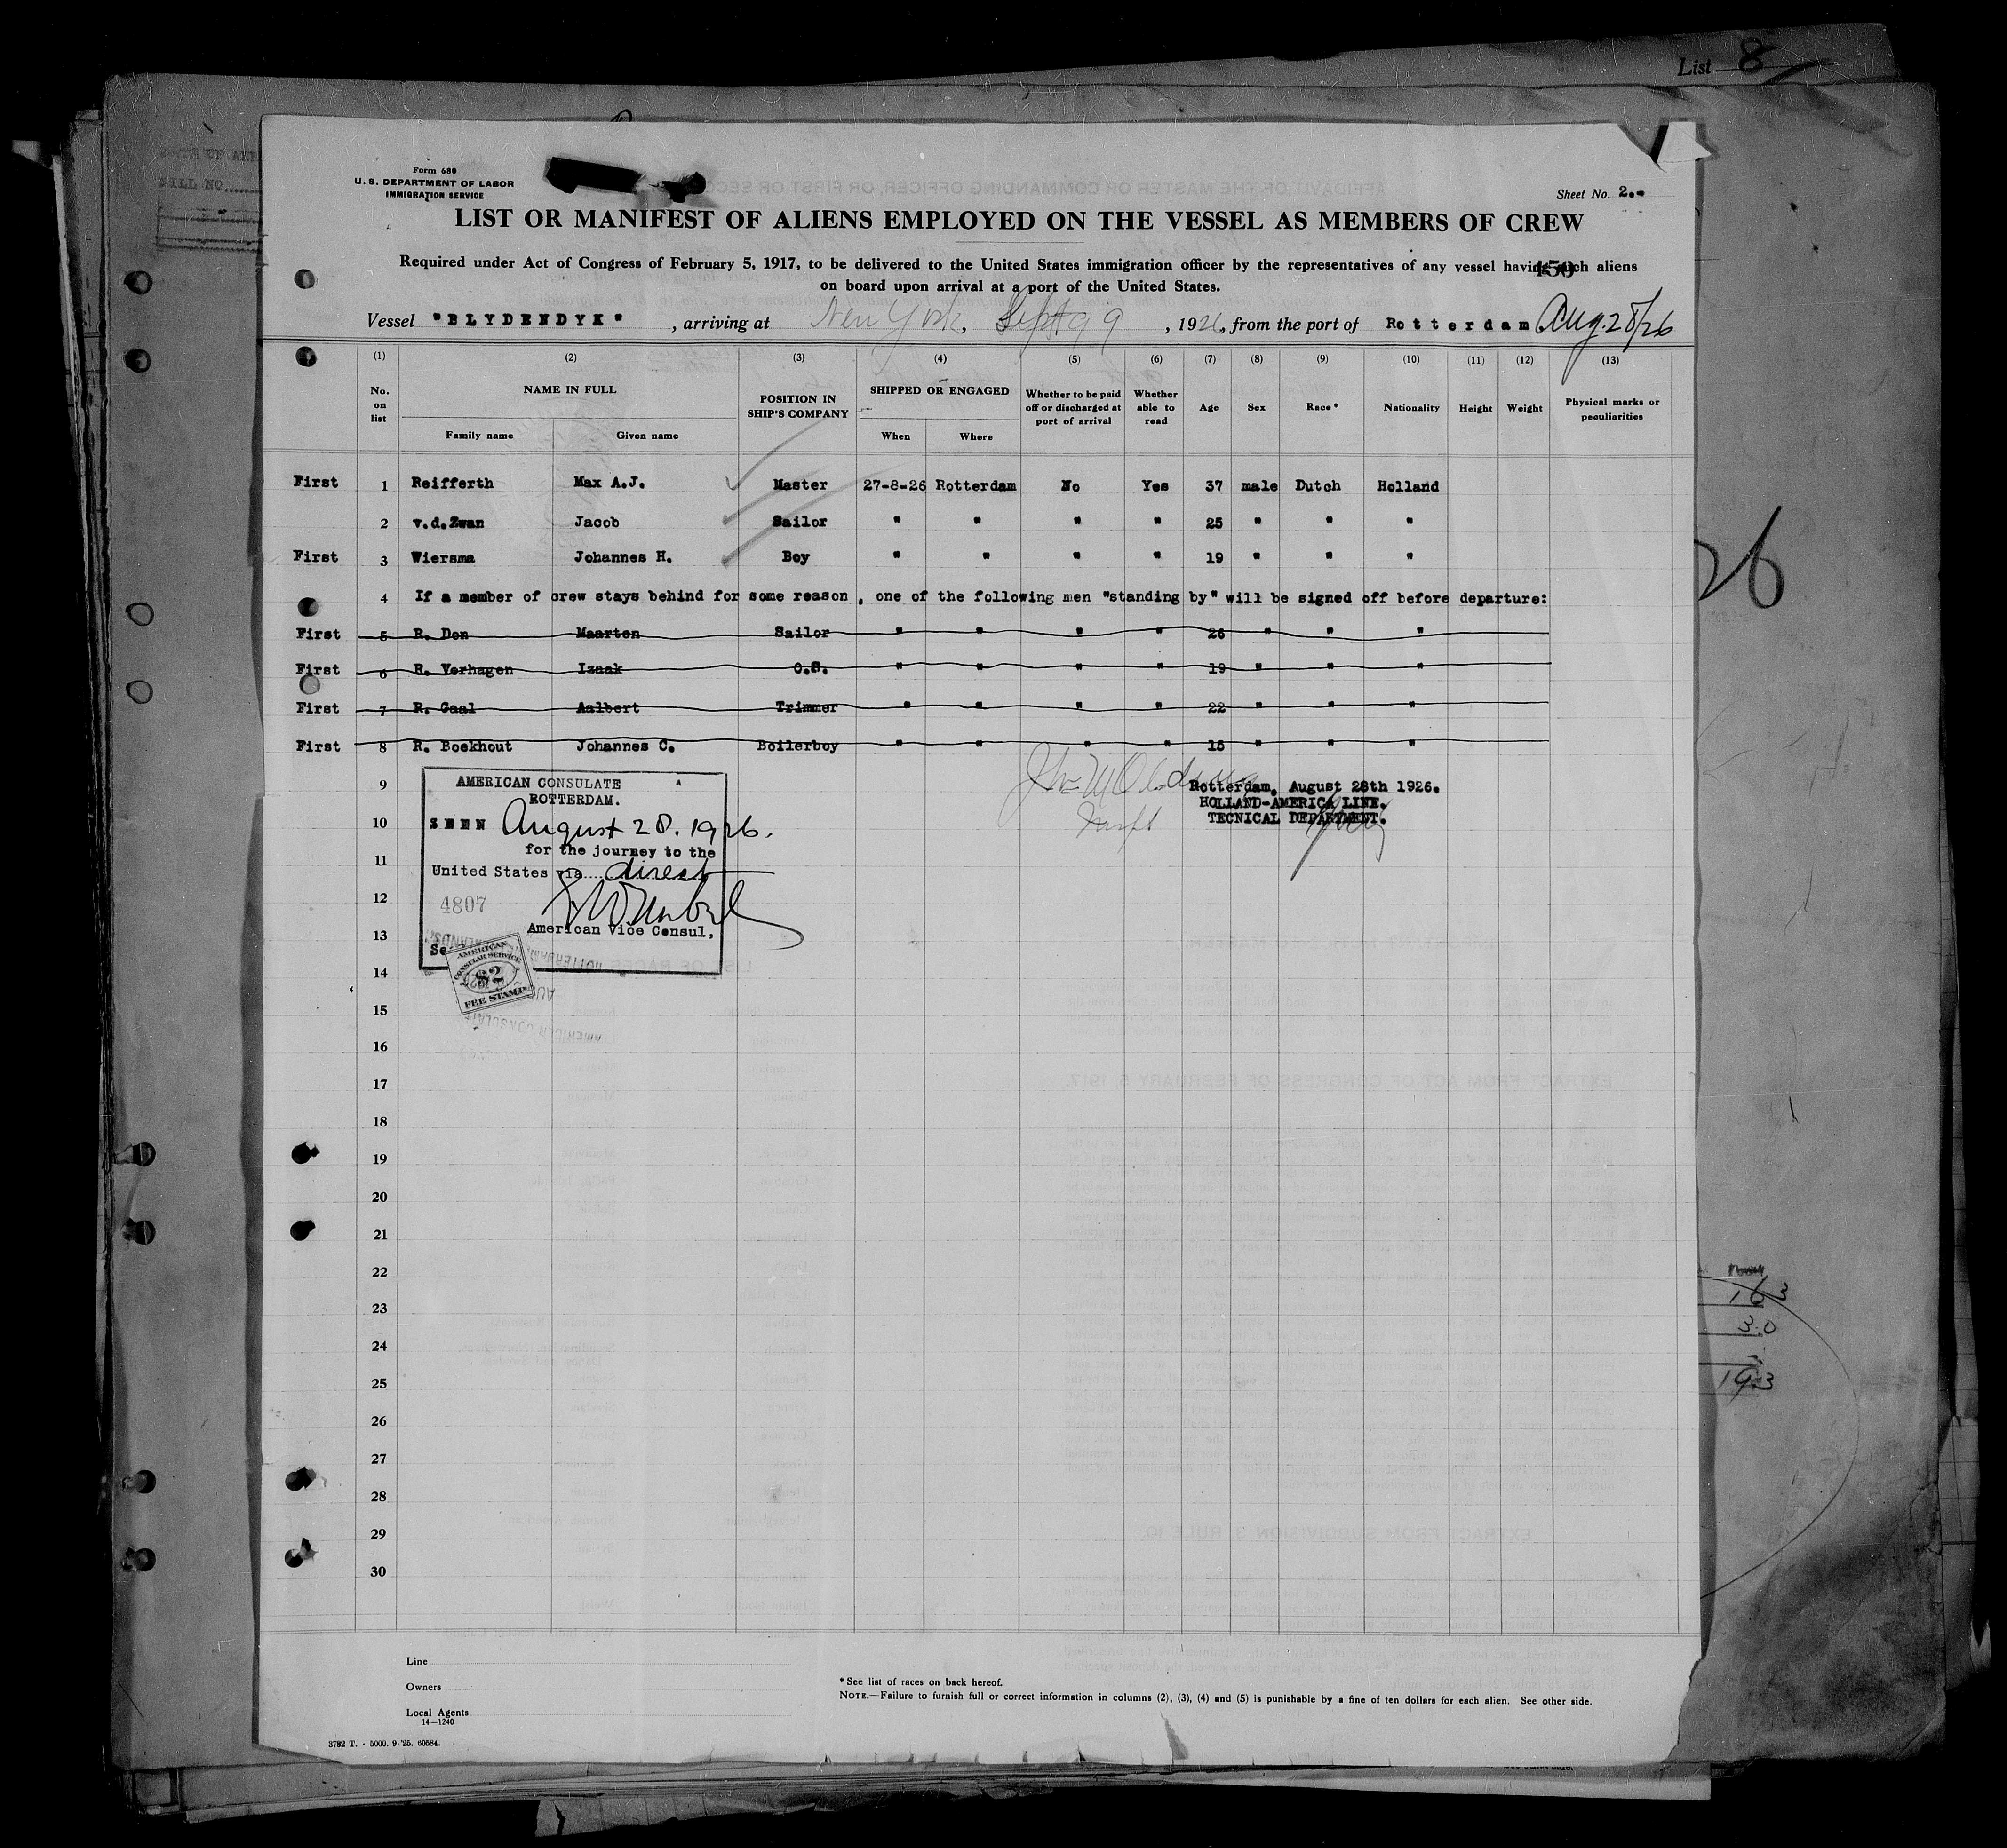 List 8
Form 680
U. S. DEPARTMENT OF LABOR
IMMIGRATION SERVICE
Sheet No. 2.-
LIST OR MANIFEST OF ALIENS EMPLOYED ON THE VESSEL AS MEMBERS OF CREW
Required under Act of Congress of February 5, 1917, to be delivered to the United States immigration officer by the representatives of any vessel having such aliens
450
on board upon arrival at a port of the United States.
Vessel "BLYDENDYK" , arriving at New York, Sept 9 , 1926, from the port of Rotterdam Aug. 28/26
(1) (2) (3) (4) (5) (6) (7) (8) (9) (10) (11) (12) (13)
No. on list NAME IN FULL POSITION IN SHIP'S COMPANY SHIPPED OR ENGAGED Whether to be paid off or discharged at port of arrival Whether able to read Age Sex Race* Nationality Height Weight Physical marks or peculiarities
Family name Given name When Where
First 1 Reifferth Max A.J. Master 27-8-26 Rotterdam No Yes 37 male Dutch Holland
2 v.d.Zwan Jacob Sailor " " " " 25 " " "
First 3 Wiersma Johannes H. Boy " " " " 19 " " "
4 If a member of crew stays behind for some reason , one of the following men "standing by" will be signed off before departure:
First 5 R. Don Maarten Sailor " " " " 26 " " "
First 6 R. Verhagen Izaak O.S. " " " " 19 " " "
First 7 R. Gaal Aalbert Trimmer " " " " 22 " " "
First 8 R. Boekhout Johannes C. Boilerboy " " " " 15 " " "
9
10
11
12
13
14
15
16
17
18
19
20
21
22
23
24
25
26
27
28
29
30
AMERICAN CONSULATE
ROTTERDAM.
SEEN August 28. 1926.
for the journey to the
United States via.... direct
4807
American Vice Consul,
Se
AMERICAN
CONSULAR SERVICE
$2
FEE STAMP
Rotterdam, August 28th 1926.
HOLLAND-AMERICA LINE.
TECNICAL DEPARTMENT.
26
163
30
193
Line
Owners
Local Agents
14—1240
*See list of races on back hereof.
NOTE.—Failure to furnish full or correct information in columns (2), (3), (4) and (5) is punishable by a fine of ten dollars for each alien. See other side.
3782 T. - 5000. 9-'25. 60584.